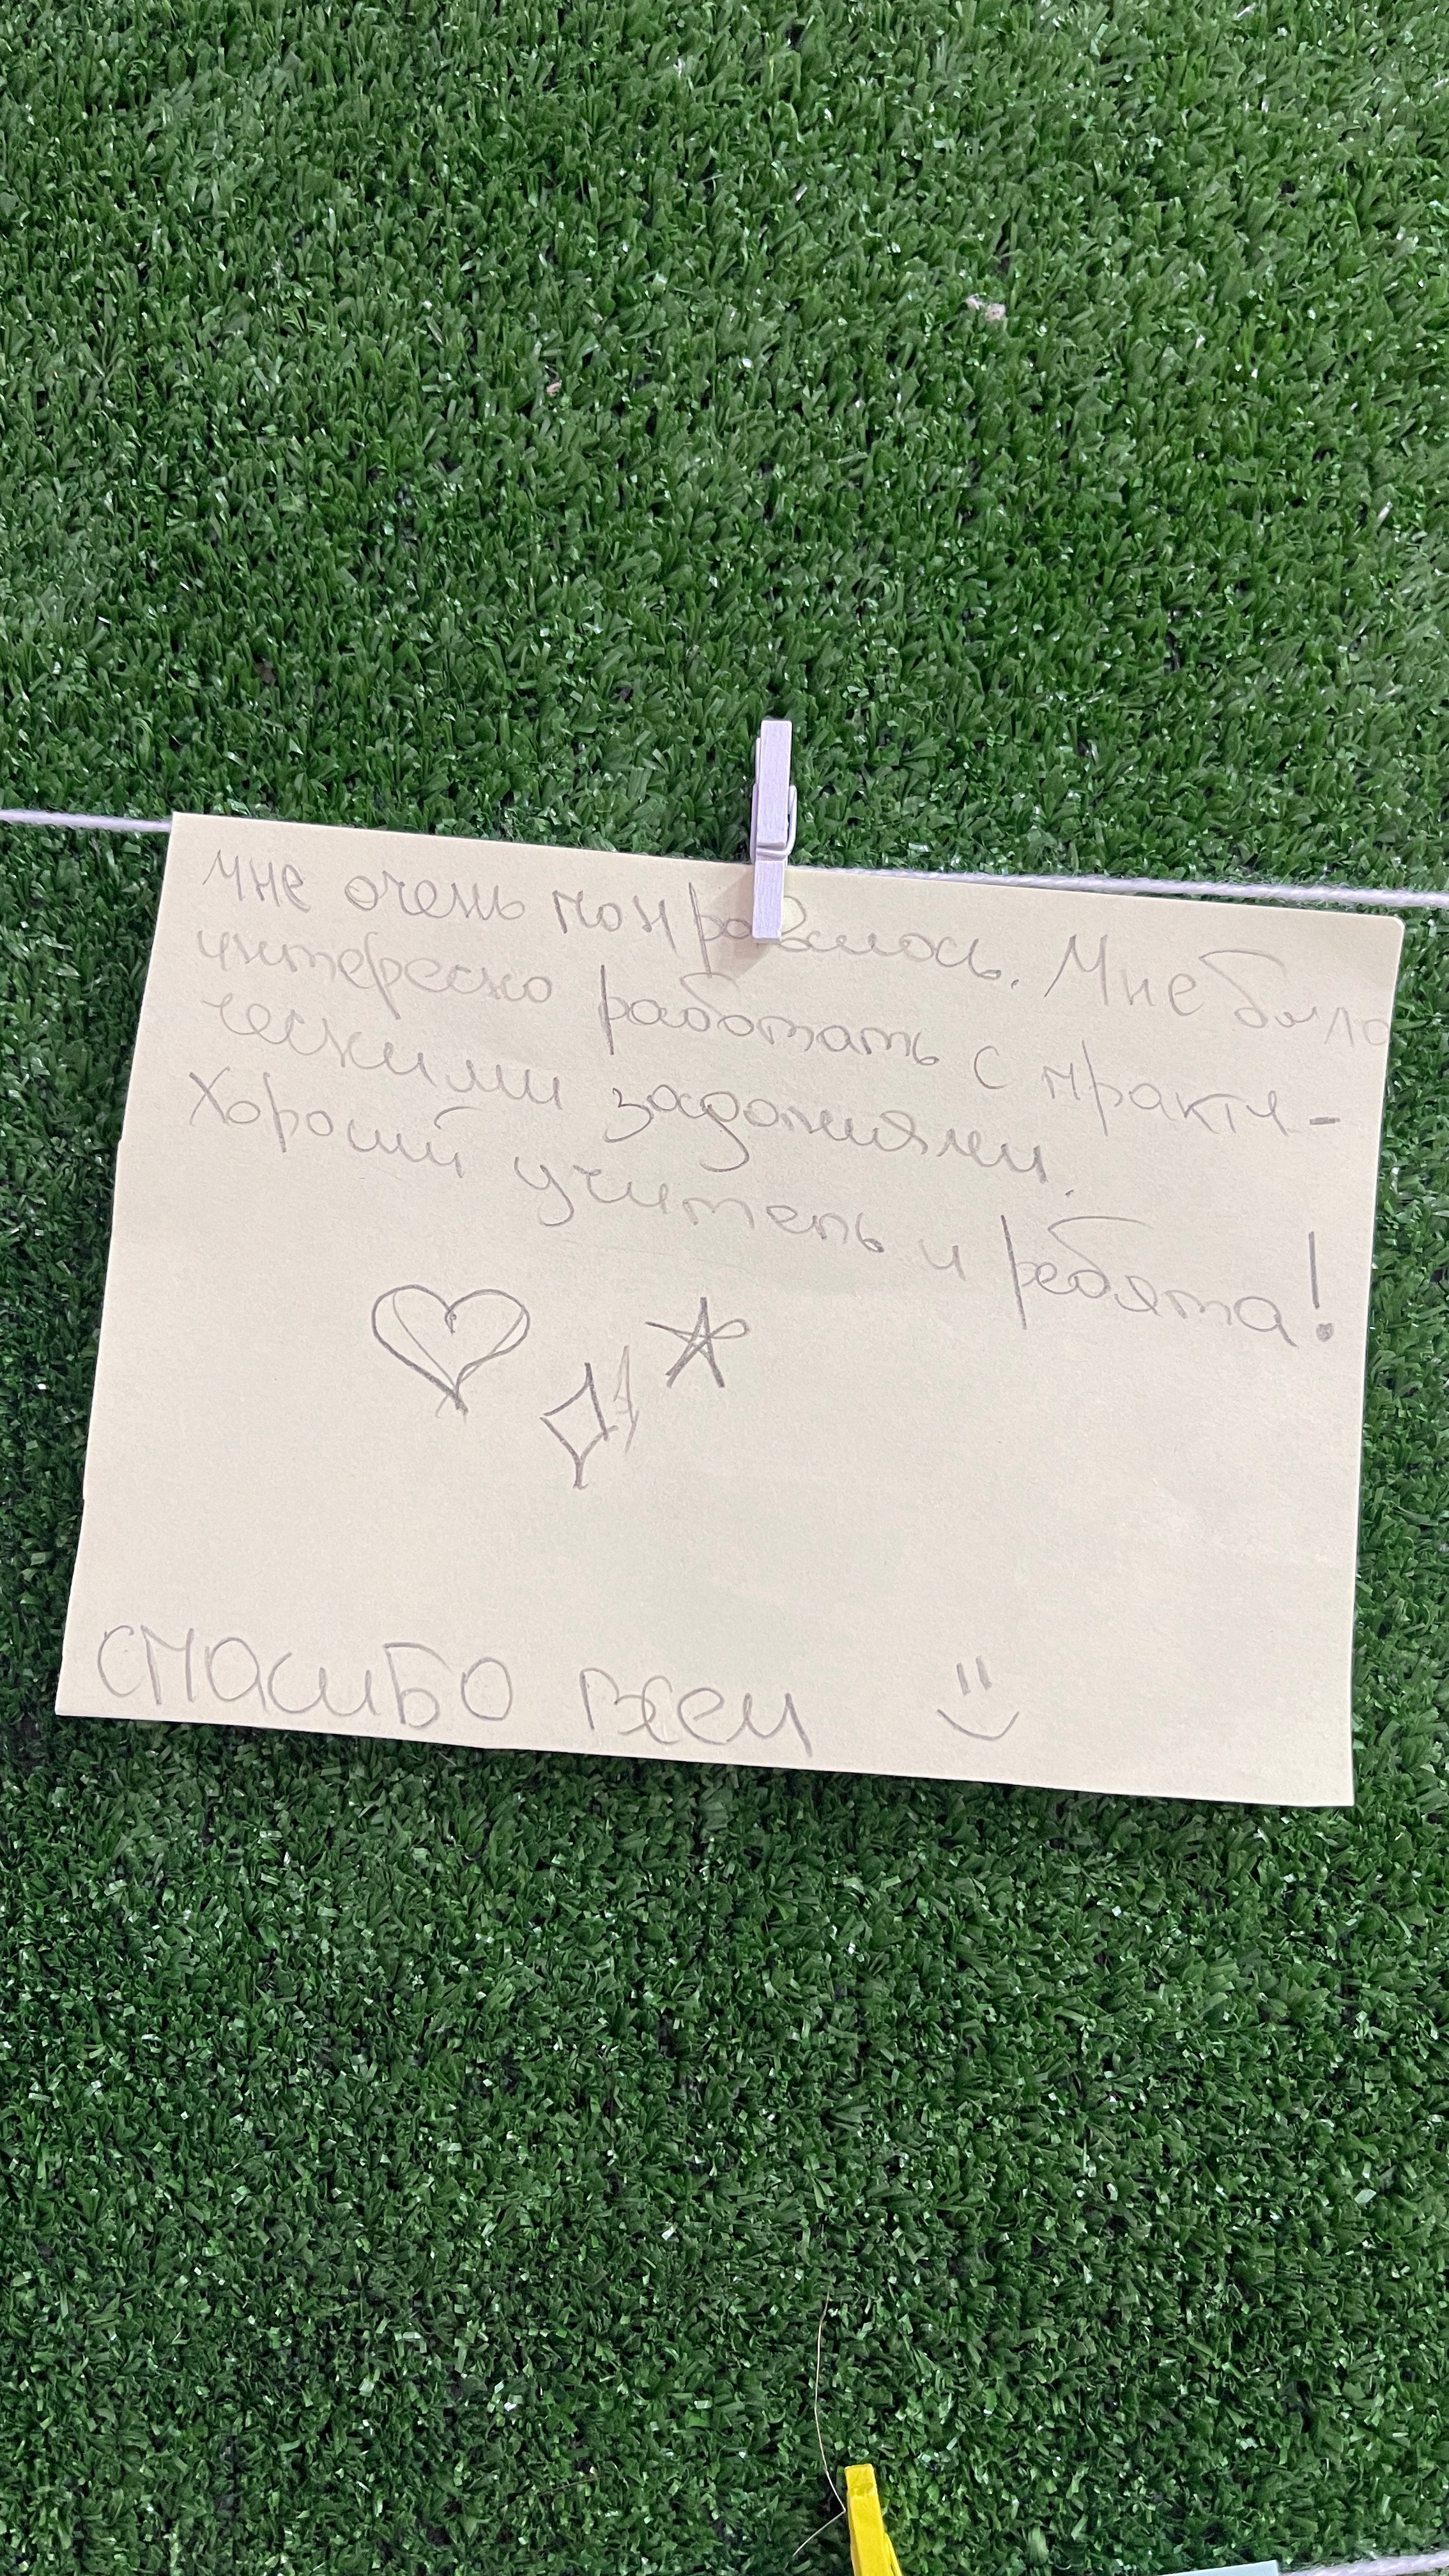 мне очень понравилось. Мне было
интересно работать с практи-
ческими заданиями.
Хороший учитель и ребята!
спасибо всем